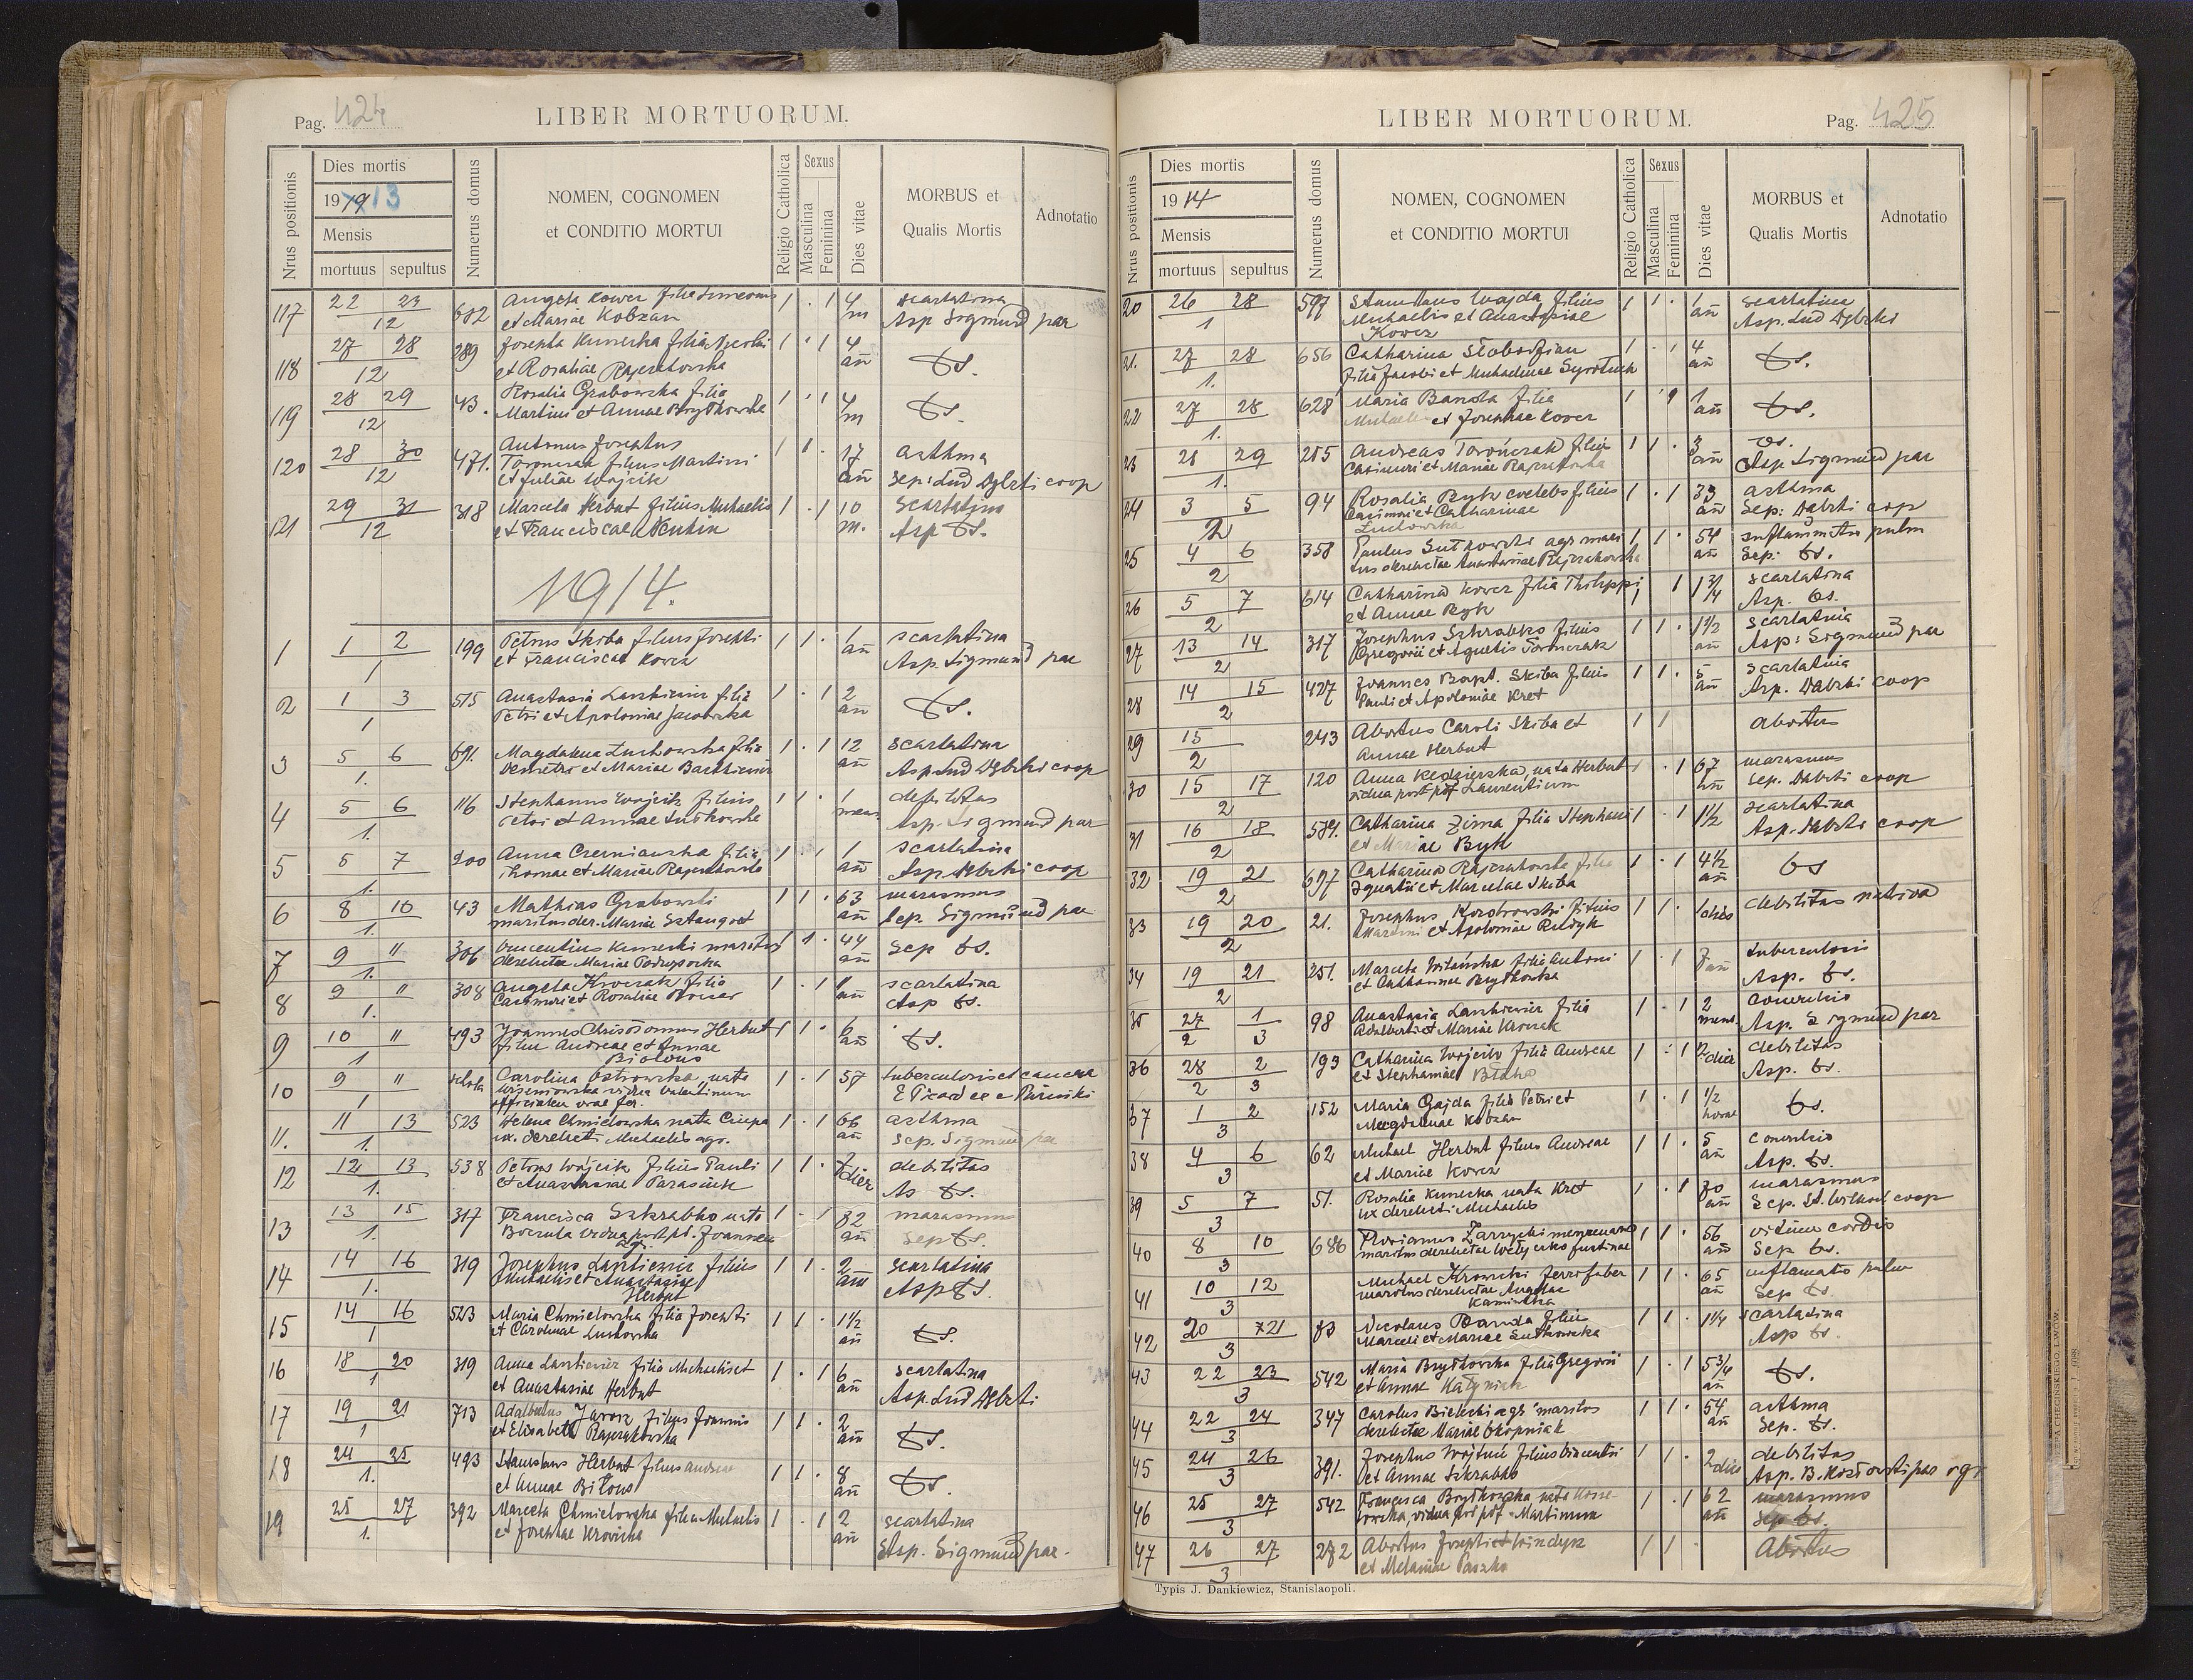 Pag. 424
LIBER MORTUORUM.
Nrus positionis
Dies mortis
1913
Mensis
mortuus sepultus
Numerus domus
NOMEN, COGNOMEN
et CONDITIO MORTUI
Religio Catholica
Sexus
Masculina
Feminina
Dies vitae
MORBUS et
Qualis Mortis
Adnotatio
117 22 23 12 682 Angela Kower filia Simeonis 1 · 1 4 m scarlatina
et Mariae Kobzan Asp Sigmund par
118 27 28 12 289 Josepha Kunecka filia Nicolai 1 · 1 4 an̄ ts.
et Rosaliae Rajczakowska
119 28 29 12 43. Rosalia Grabowska filia 1 · 1 4 m ts.
Martini et Annae Brytkowska
120 28 30 12 471. Antonius Josephus 1 1 · 17 an̄ asthma
Torończak filius Martini
et Juliae Wójcik Sep: Lud Dąbrki coop
121 29 31 12 318 Marcela Herbut filius Michaelis 1 · 1 10 m. Scarlatina
et Franciscae Asp ts.
1914.
1 1 2 1 199 Petrus Skiba filius Josephi 1 1 · 1 an̄ scarlatina
et Franciscae Kower Asp. Sigmund par
2 1 3 1 515 Anastasia Laszkiewicz filia 1 · 1 2 an̄ ts.
Petri et Apoloniae
3 5 6 1. 691. Magdalena Luchowska filia 1 · 1 12 an̄ scarlatina
Demetri et Mariae Asp Lud Dąbrki coop
4 5 6 1. 116 Stephanus Wójcik filius 1 1 · 1 mens debilitas
Petri et Annae Sutkowska Asp. Sigmund par
5 5 7 1. 200 Anna Czerniawska filia 1 · 1 1 an̄ scarlatina
Thomae et Mariae Rajczakowska Asp Dąbrki coop
6 8 10 1. 43 Mathias Grabowski 1 1 · 63 an̄ marasmus
maritus der. Mariae Sztangret Sep. Sigmund par
7 9 11 1. 306 Vincentius Kunecki maritus 1 1 · 44 an̄ Sep ts.
derelictae Mariae
8 9 11 1. 308 Angela Krowiak filia 1 · 1 1 an̄ scarlatina
Casimiri et Rosaliae Asp ts.
9 10 11 1 493 Joannes Chrisostomus Herbut 1 1 · 6 an̄ ts.
filius Andreae et Annae
Biłous
10 9 11 1 Carolina Ostrowska nata 1 · 1 57 tuberculosis et cancer
Wiszniowska vidua Valentinum
11. 11 13 1. 523 Helena Chmielowska nata 1 · 1 66 an̄ asthma
ux. derelicti Michaelis agr. Sep. Sigmund par
12 12 13 1. 538 Petrus Wójcik filius Pauli 1 1 · 7 dier debilitas
et Anastasiae Parasiuk As ts.
13 13 15 1. 317 Francisca Szkrabko nata 1 · 1 82 an̄ marasmus
vidua post pd. Joannem Sep ts.
14 14 16 1. 319 Josephus Laszkiewicz filius 1 1 · 2 an̄ scarlatina
Michaelis et Anastasiae
Herbut Asp ts.
15 14 16 1 523 Maria Chmielowska filia Josephi 1 1 · 1½ an̄ ts.
et Carolinae Luchowska
16 18 20 1 319 Anna Laszkiewicz filia Michaelis et 1 · 1 6 an̄ scarlatina
et Anastasiae Herbut Asp. Lud Dąbrki
17 19 21 1 713 Adalbertus Jarosz filius Joannis 1 1 · 2 an̄ ts.
et Elisabeth Rajczakowska
18 24 25 1. 493 Stanislaus Herbut filius Andreae 1 1 · 8 an̄ ts.
et Annae Biłous
19 25 27 1. 392 Marcela Chmielowska filia Michaelis 1 · 1 2 an̄ scarlatina
et Josephae Krowicka Asp. Sigmund par.
LIBER MORTUORUM.
Pag. 425
Nrus positionis
Dies mortis
1914
Mensis
mortuus sepultus
Numerus domus
NOMEN, COGNOMEN
et CONDITIO MORTUI
Religio Catholica
Sexus
Masculina
Feminina
Dies vitae
MORBUS et
Qualis Mortis
Adnotatio
20 26 28 1 597 Stanislaus Wajda filius 1 1 · 1 an̄ scarlatina
Michaelis et Anastasiae Asp. Lud Dąbrki
Kower
21. 27 28 1. 656 Catharina Słobodzian 1 · 1 4 an̄ ts.
filia Jacobi et Michaelinae
22 27 28 1. 628 Maria Banda filia 1 · 1 1 an̄ ts.
Michaelis et Josephae Kower
23 28 29 1. 285 Andreas Torończak filius 1 1 · 3 an̄ ts.
Casimiri et Mariae Rajczakowska Asp. Sigmund par
24 3 5 2 94 Rosalia Byk coelebs filius 1 · 1 33 an̄ asthma
Casimiri et Catharinae Sep: Dąbrki cop
Luchowska
25 4 6 2 358 Paulus Sutkowski agr mari 1 1 · 54 an̄ inflammatio pulm
tus derelictae Anastasiae Rajczakowska Sep: ts.
26 5 7 2 614 Catharina Kower filia Philippi 1 1 1¾ scarlatina
et Annae Byk Asp. ts.
27 13 14 2 317 Josephus Szkrabko filius 1 1 · 1½ an̄ scarlatina
Gregorii et Agnetis Torończak Asp: Sigmund par
28 14 15 2 427 Joannes Bapt. Skiba filius 1 1 · 5 an̄ scarlatina
Pauli et Apoloniae Kret Asp. Dąbrki coop
29 15 2 243 Abortus Caroli Skiba et 1 1 abortus
Annae Herbut
30 15 17 2 120 Anna Kędzierska, nata Herbut · 1 67 an̄ marasmus
vidua post pdf Laurentium Sep. Dąbrki coop
31 16 18 2 589. Catharina Zima filia Stephani 1 · 1 1½ scarlatina
et Mariae Byk Asp. Dąbrki coop
32 19 21 2 697 Catharina Rajczakowska filia 1 · 1 4½ an̄ ts
Ignatii et Marcelae Skiba
33 19 20 2 21. Josephus filius 1 1 · 1 dies debilitas nativa
et Apoloniae
34 19 21 2 251. Marcela filia Antoni 1 · 1 7 an̄ tuberculosis
et Catharinae Brytkowska Asp. ts.
35 27 2 1 3 98 Anastasia Laszkiewicz filia 1 · 1 2 mens Convulsio
Adalberti et Mariae Krowiak Asp. Sigmund par
36 28 2 2 3 193 Catharina Wójcik filia Andreae 1 · 1 2 dier debilitas
et Stephaniae Asp. ts.
37 1 2 3 152 Maria Gajda filia Petri et 1 · 1 1/2 horae ts.
Magdalenae Kobzan
38 4 6 3 62 Michael Herbut filius Andreae 1 1 · 5 an̄ Convulsio
et Mariae Kower Asp. ts.
39 5 7 3 51. Rosalia Kunecka nata Kret 1 · 1 70 an̄ marasmus
ux derelicti Michaelis Sep. St. coop
40 8 10 3 686 Florianus Zarzycki 1 1 · 56 an̄ vitium cordis
maritus derelictae Justinae Sep ts.
41 10 12 3 Michael Krowicki ferrifaber 1 1 · 65 an̄ inflamatio pulm
maritus derelictae Angelae
Kamińska Sep ts.
42 20 21 3 83 Nicolaus Banda filius 1 1 · 1¼ scarlatina
Marceli et Mariae Sutkowska Asp ts.
43 22 23 3 542 Maria Brytkowska filia Gregorii 1 · 1 5¾ an̄ ts.
et Annae
44 22 24 3 347 Carolus Bielecki agr maritus 1 1 · 54 an̄ asthma
derelictae Mariae Skopniak Sep. ts.
45 24 26 3 391. Josephus filius Vincentii 1 1 · 2 dies debilitas
et Annae Szkrabko Asp. B. Kozłowski par
46 25 27 3 542 Francisca Brytkowska nata 1 · 1 62 an̄ marasmus
vidua post pdf Martinum Sep ts.
47 26 27 3 272 Abortus Josephi et Windyk 1 1 · Abortus
et Melaniae Paszko
Typis J. Dankiewicz, Stanislaopoli.